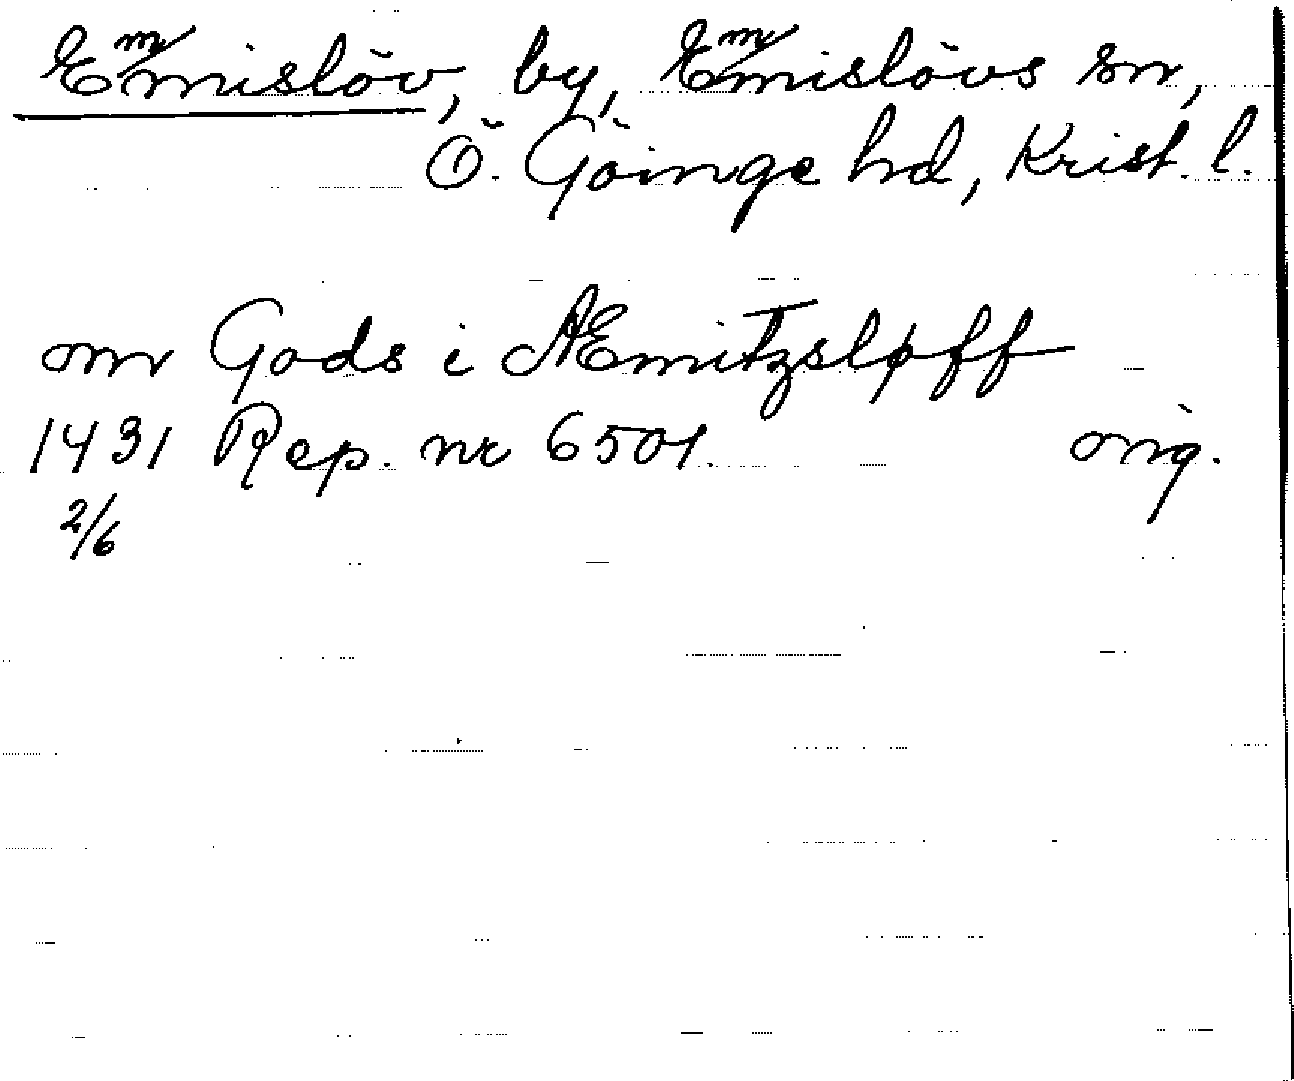 Emmislöv, by, Emmislövs sn,
Ö. Göinge hd, Krist. l.
om Gods i Æmitzsløff
1431 Rep. nr 6501. orig.
2/6